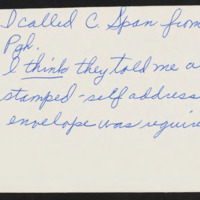 I called C. Span from
Pgh.
I think they told me a
stamped-self address
envelope was require